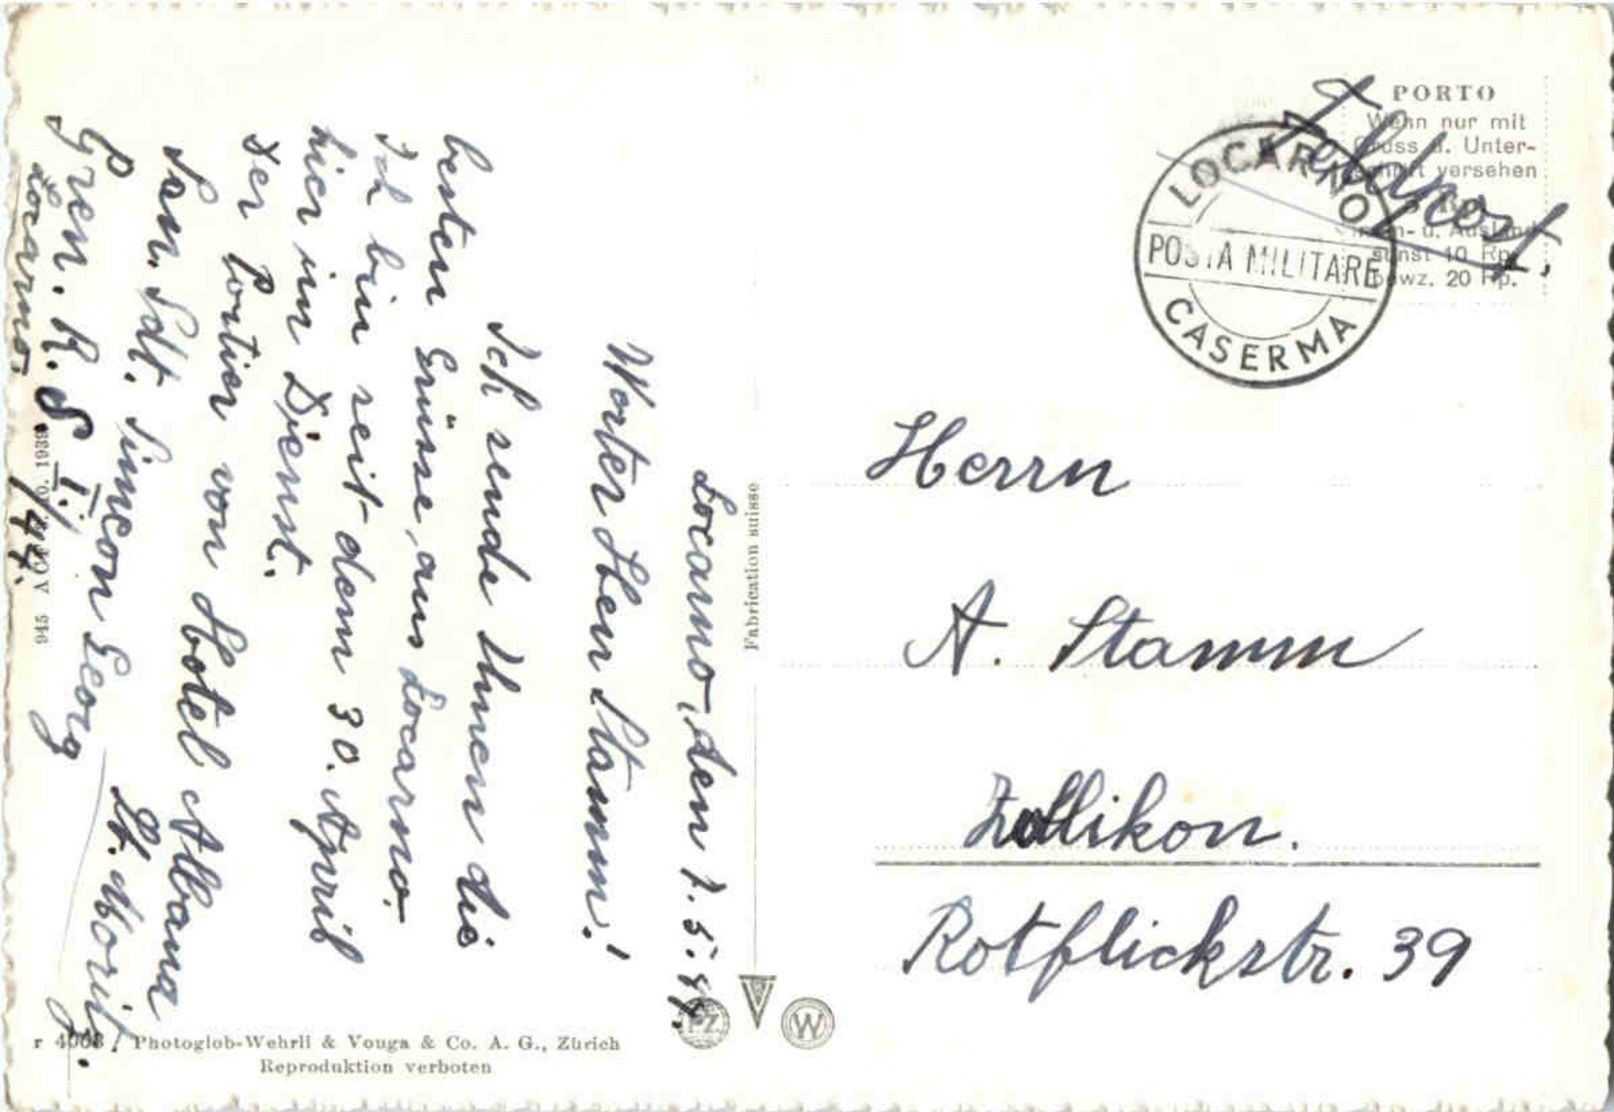 Locarno, den 7. 5. 44.
Werter Herr Stamm!
Ich sende Ihnen die
besten Grüsse, aus Locarno.
Ich bin seit dem 30. April
hier im Dienst.
Der Portier von Hotel Albana
St. Moritz.
San. Sdt. Simeon Georg
Gren. R. S I./44.
Locarno.
Feldpost.
PORTO
Wenn nur mit
Gruss u. Unter-
schrift versehen
In- u. Ausland
sonst 10 Rp.
bezw. 20 Rp.
LOCARNO
POSTA MILITARE
CASERMA
Herrn
A. Stamm
Zollikon.
Rotflickstr. 39
Fabrication suisse
945 A 1939
PZ
W
r 4068 Photoglob-Wehrli & Vouga & Co. A. G., Zürich
Reproduktion verboten